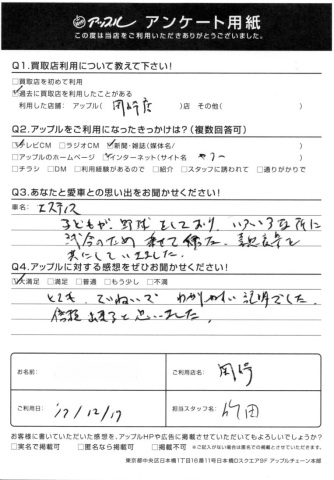 アップル アンケート用紙
この度は当店をご利用いただきありがとうございました。
Q1.買取店利用について教えて下さい!
□買取店を初めて利用
☑過去に買取店を利用したことがある
利用した店舗: アップル( 岡崎店 )店 その他( )
Q2.アップルをご利用になったきっかけは?(複数回答可)
☑テレビCM □ラジオCM ☑新聞・雑誌(媒体名/ )
□アップルのホームページ ☑インターネット(サイト名 ヤフー )
□チラシ □DM □利用経験があるので □紹介 □スタッフに誘われて □通りがかりで
Q3.あなたと愛車との思い出をお聞かせください!
車名: エスティマ
子どもが、野球をしており、いろいろな所に
試合のため乗せて
共にしていました。
Q4.アップルに対する感想をぜひお聞かせください!
☑大満足 □満足 □普通 □もう少し □不満
とても、ていねいで わかりやすい説明でした。
信頼出来ると思いました。
お名前:
ご利用店名: 岡崎
ご利用日: 17/12/17
担当スタッフ名: 竹田
お客様に書いていただいた感想を、アップルHPや広告に掲載させていただいてもよろしいでしょうか?
□実名で掲載可 □匿名なら掲載可 □掲載不可 ※場合によっては掲載されないことがあります。
東京都中央区日本橋1丁目16番11号日本橋Dスクエア8F アップルチェーン本部